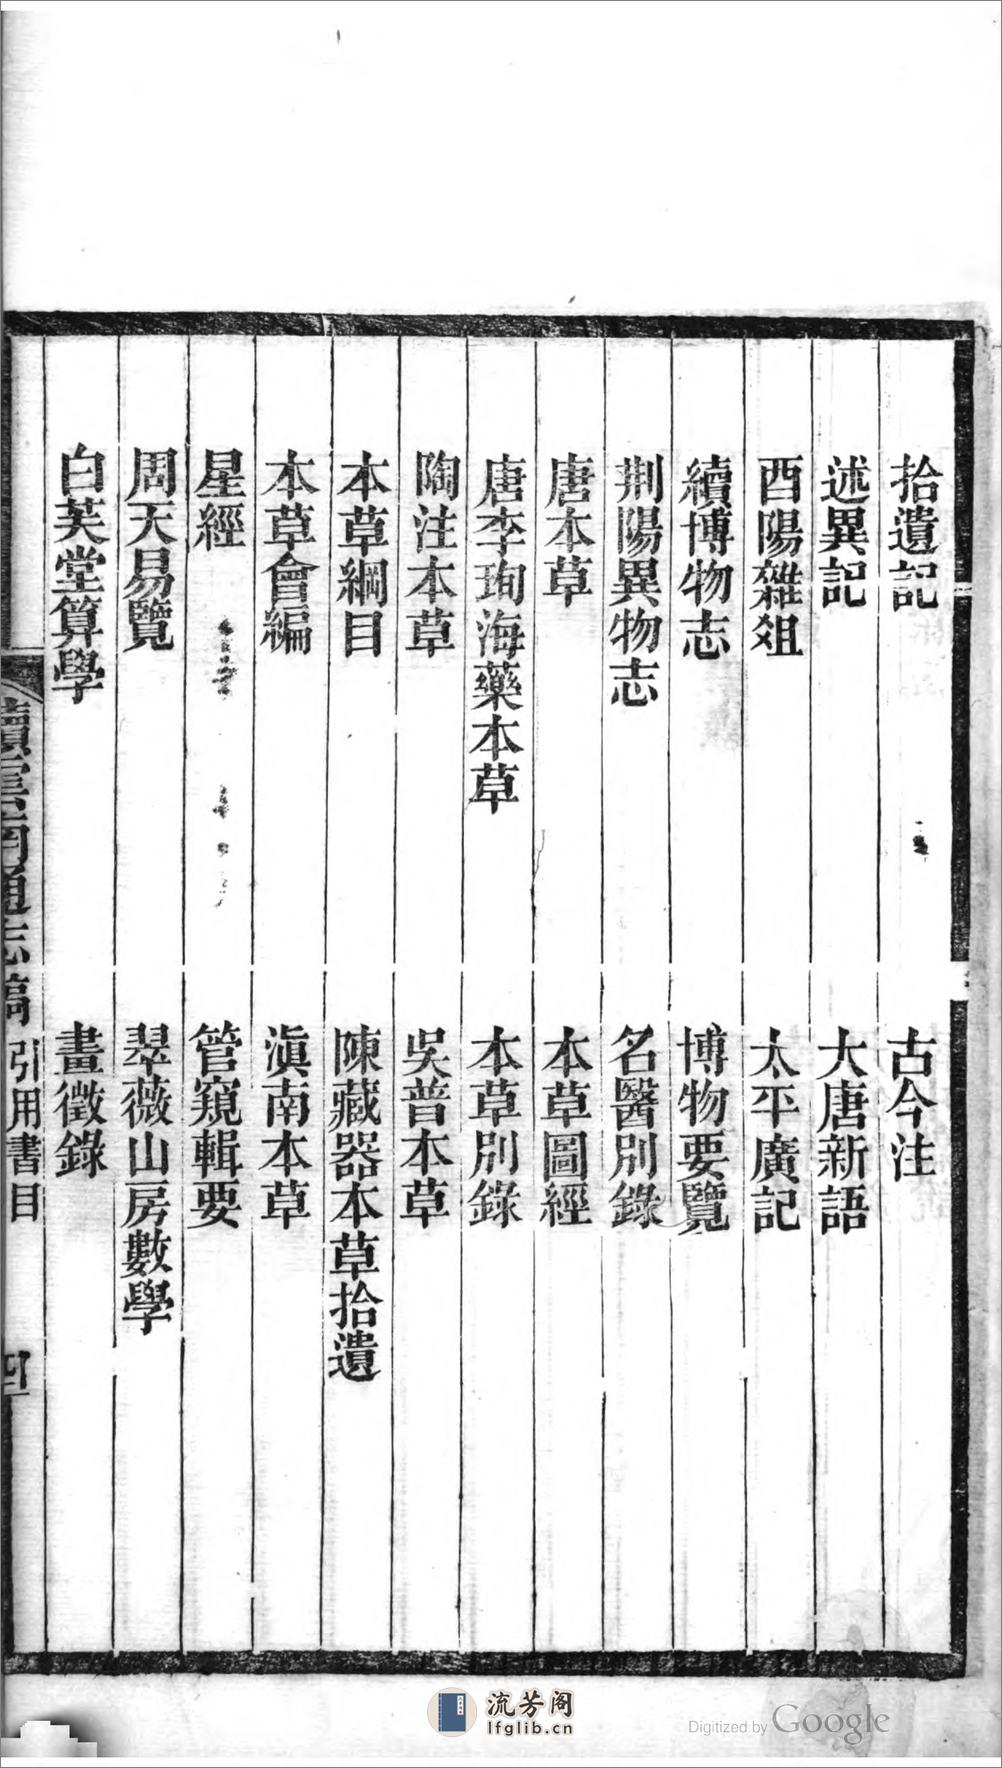 拾遺記 古今注
述異記 大唐新語
酉陽雜俎 太平廣記
續博物志 博物要覽
荆陽異物志 名醫別錄
唐本草 本草圖經
唐李珣海藥本草 本草別錄
陶注本草 吳普本草
本草綱目 陳藏器本草拾遺
本草會編 滇南本草
星經 管窺輯要
周天易覽 翠薇山房數學
白芙堂算學 畫徵錄
續雲南通志稿 引用書目 四
流芳阁
lfglib.cn
Digitized by Google